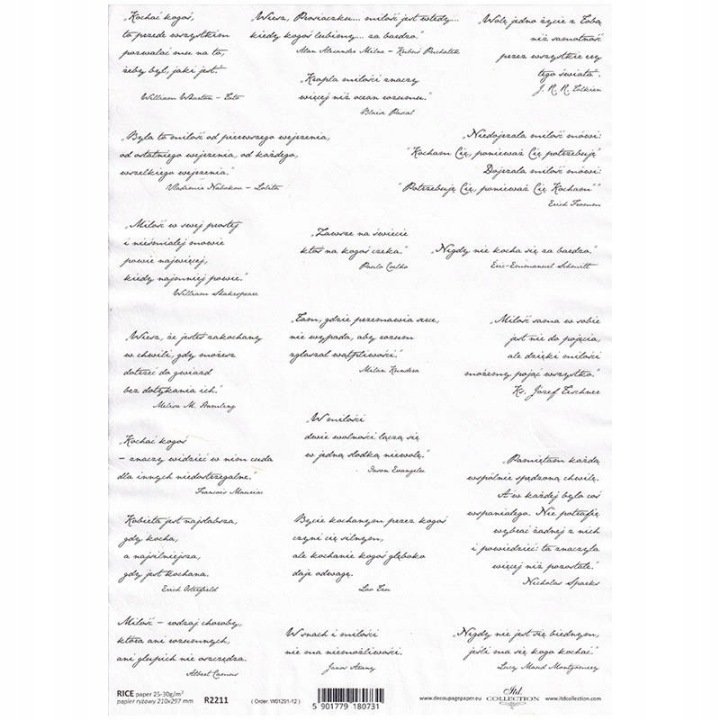 „Kochać kogoś,
to przede wszystkim
pozwalać mu na to,
żeby był, jaki jest."
William Wharton - Tato
„Wiesz, Prosiaczku... miłość jest wtedy...
kiedy kogoś lubimy... za bardzo."
Alan Alexander Milne - Kubuś Puchatek
„Kropla miłości znaczy
więcej niż ocean rozumu."
Blaise Pascal
„Wolę jedno życie z Tobą
niż samotność
przez wszystkie ery
tego świata."
J. R. R. Tolkien
„Była to miłość od pierwszego wejrzenia,
od ostatniego wejrzenia, od każdego,
wszelkiego wejrzenia."
Vladimir Nabokov - Lolita
„Niedojrzała miłość mówi:
"Kocham Cię, ponieważ Cię potrzebuję"
Dojrzała miłość mówi:
"Potrzebuję Cię, ponieważ Cię Kocham""
Erich Fromm
„Miłość w swej prostej
i nieśmiałej mowie
powie najwięcej,
kiedy najmniej powie."
William Shakespeare
„Zawsze na świecie
ktoś na kogoś czeka."
Paulo Coelho
„Nigdy nie kocha się za bardzo."
Eric-Emmanuel Schmitt
„Wiesz, że jesteś zakochany
w chwili, gdy możesz
dotrzeć do gwiazd
bez dotykania ich."
Melissa M.
„Tam, gdzie przemawia serce,
nie wypada, aby rozum
zgłaszał wątpliwości."
Milan Kundera
„Miłość sama w sobie
jest nie do pojęcia,
ale dzięki miłości
możemy pojąć wszystko."
Ks. Józef Tischner
„W miłości
dwie wolności łączą się
w jedną słodką niewolę."
Jason Evangelu
„Kochać kogoś
- znaczy widzieć w nim cuda
dla innych niedostrzegalne."
Francois Mauriac
„Pamiętam każdą
wspólnie spędzoną chwilę.
A w każdej było coś
wspaniałego. Nie potrafię
wybrać żadnej z nich
i powiedzieć: ta znaczyła
więcej niż pozostałe."
Nicholas Sparks
Kobieta jest najsłabsza,
gdy kocha,
a najsilniejsza,
gdy jest kochana.
Erich Osterfield
Bycie kochanym przez kogoś
czyni cię silnym,
ale kochanie kogoś głęboko
daje odwagę.
Lao Tzu
Miłość - rodzaj choroby,
która ani rozumnych,
ani głupich nie oszczędza.
Albert Camus
W snach i miłości
nie ma niemożliwości.
Janos Arany
„Nigdy nie jest się biednym,
jeśli ma się kogo kochać"
Lucy Maud Montgomery
RICE paper 25-30g/m²
papier ryżowy 210x297 mm
R2211
( Order: W01291-12 )
5 901779 180731
www.decoupagepaper.eu
Itd.
COLLECTION
www.itdcollection.com